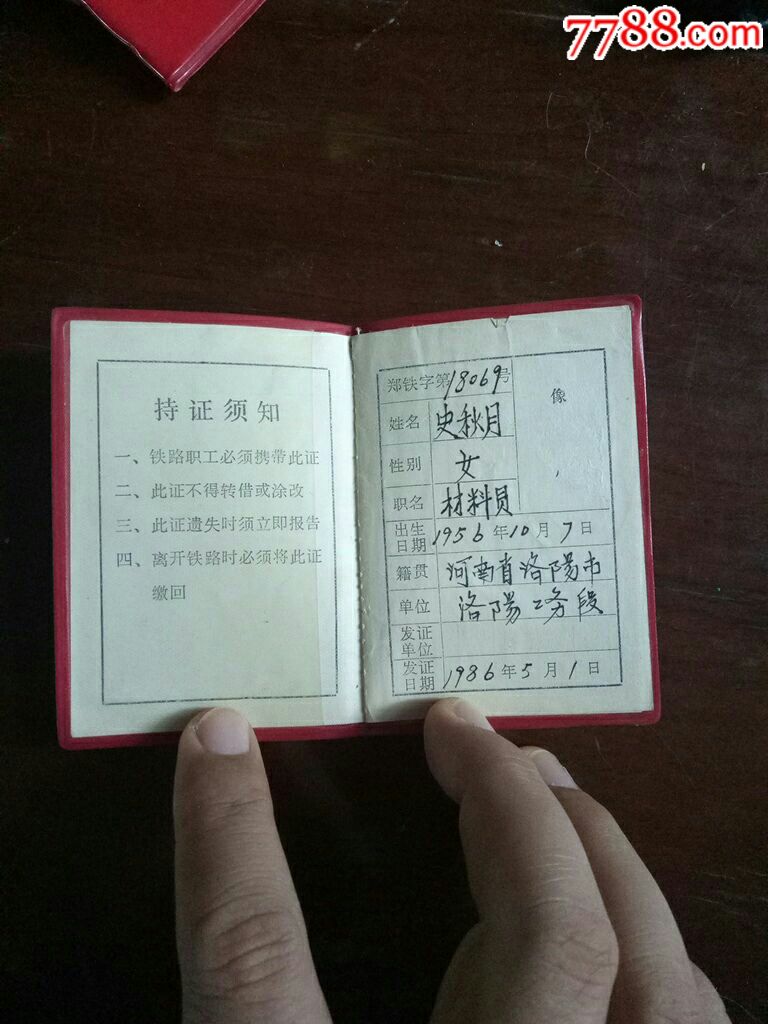 7788.com
持证须知
一、铁路职工必须携带此证
二、此证不得转借或涂改
三、此证遗失时须立即报告
四、离开铁路时必须将此证
缴回
郑铁字第18069号
像
姓名 史秋月
性别 女
职名 材料员
出生日期 1956年10月7日
籍贯 河南省洛陽市
单位 洛陽工务段
发证单位
发证日期 1986年5月1日